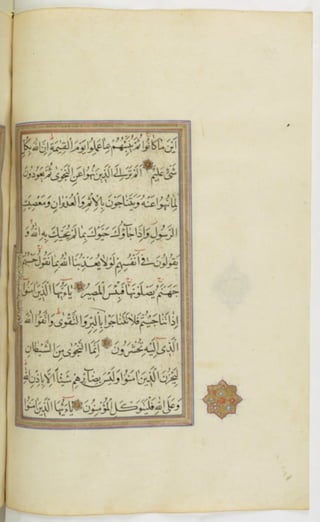 اَيْنَ مَا كَانُوا ثُمَّ يُنَبِّئُهُمْ بِمَا عَمِلُوا يَوْمَ الْقِيٰمَةِ اِنَّ اللهَ بِكُلِّ
شَىْءٍ عَلِيمٌ اَلَمْ تَرَ اِلَى الَّذِينَ نُهُوا عَنِ النَّجْوٰى ثُمَّ يَعُودُونَ
لِمَا نُهُوا عَنْهُ وَيَتَنَاجَوْنَ بِالْاِثْمِ وَالْعُدْوَانِ وَمَعْصِيَتِ
الرَّسُولِ وَاِذَا جَاؤُكَ حَيَّوْكَ بِمَا لَمْ يُحَيِّكَ بِهِ اللهُ وَ
يَقُولُونَ فِى اَنْفُسِهِمْ لَوْلَا يُعَذِّبُنَا اللهُ بِمَا نَقُولُ حَسْبُهُمْ
جَهَنَّمُ يَصْلَوْنَهَا فَبِئْسَ الْمَصِيرُ يَا اَيُّهَا الَّذِينَ اٰمَنُوا
اِذَا تَنَاجَيْتُمْ فَلَا تَتَنَاجَوْا بِالْبِرِّ وَالتَّقْوٰى وَاتَّقُوا اللهَ
الَّذِى اِلَيْهِ تُحْشَرُونَ اِنَّمَا النَّجْوٰى مِنَ الشَّيْطَانِ
لِيَحْزُنَ الَّذِينَ اٰمَنُوا وَلَيْسَ بِضَارِّهِمْ شَيْئًا اِلَّا بِاِذْنِ اللهِ
وَعَلَى اللهِ فَلْيَتَوَكَّلِ الْمُؤْمِنُونَ يَا اَيُّهَا الَّذِينَ اٰمَنُوا